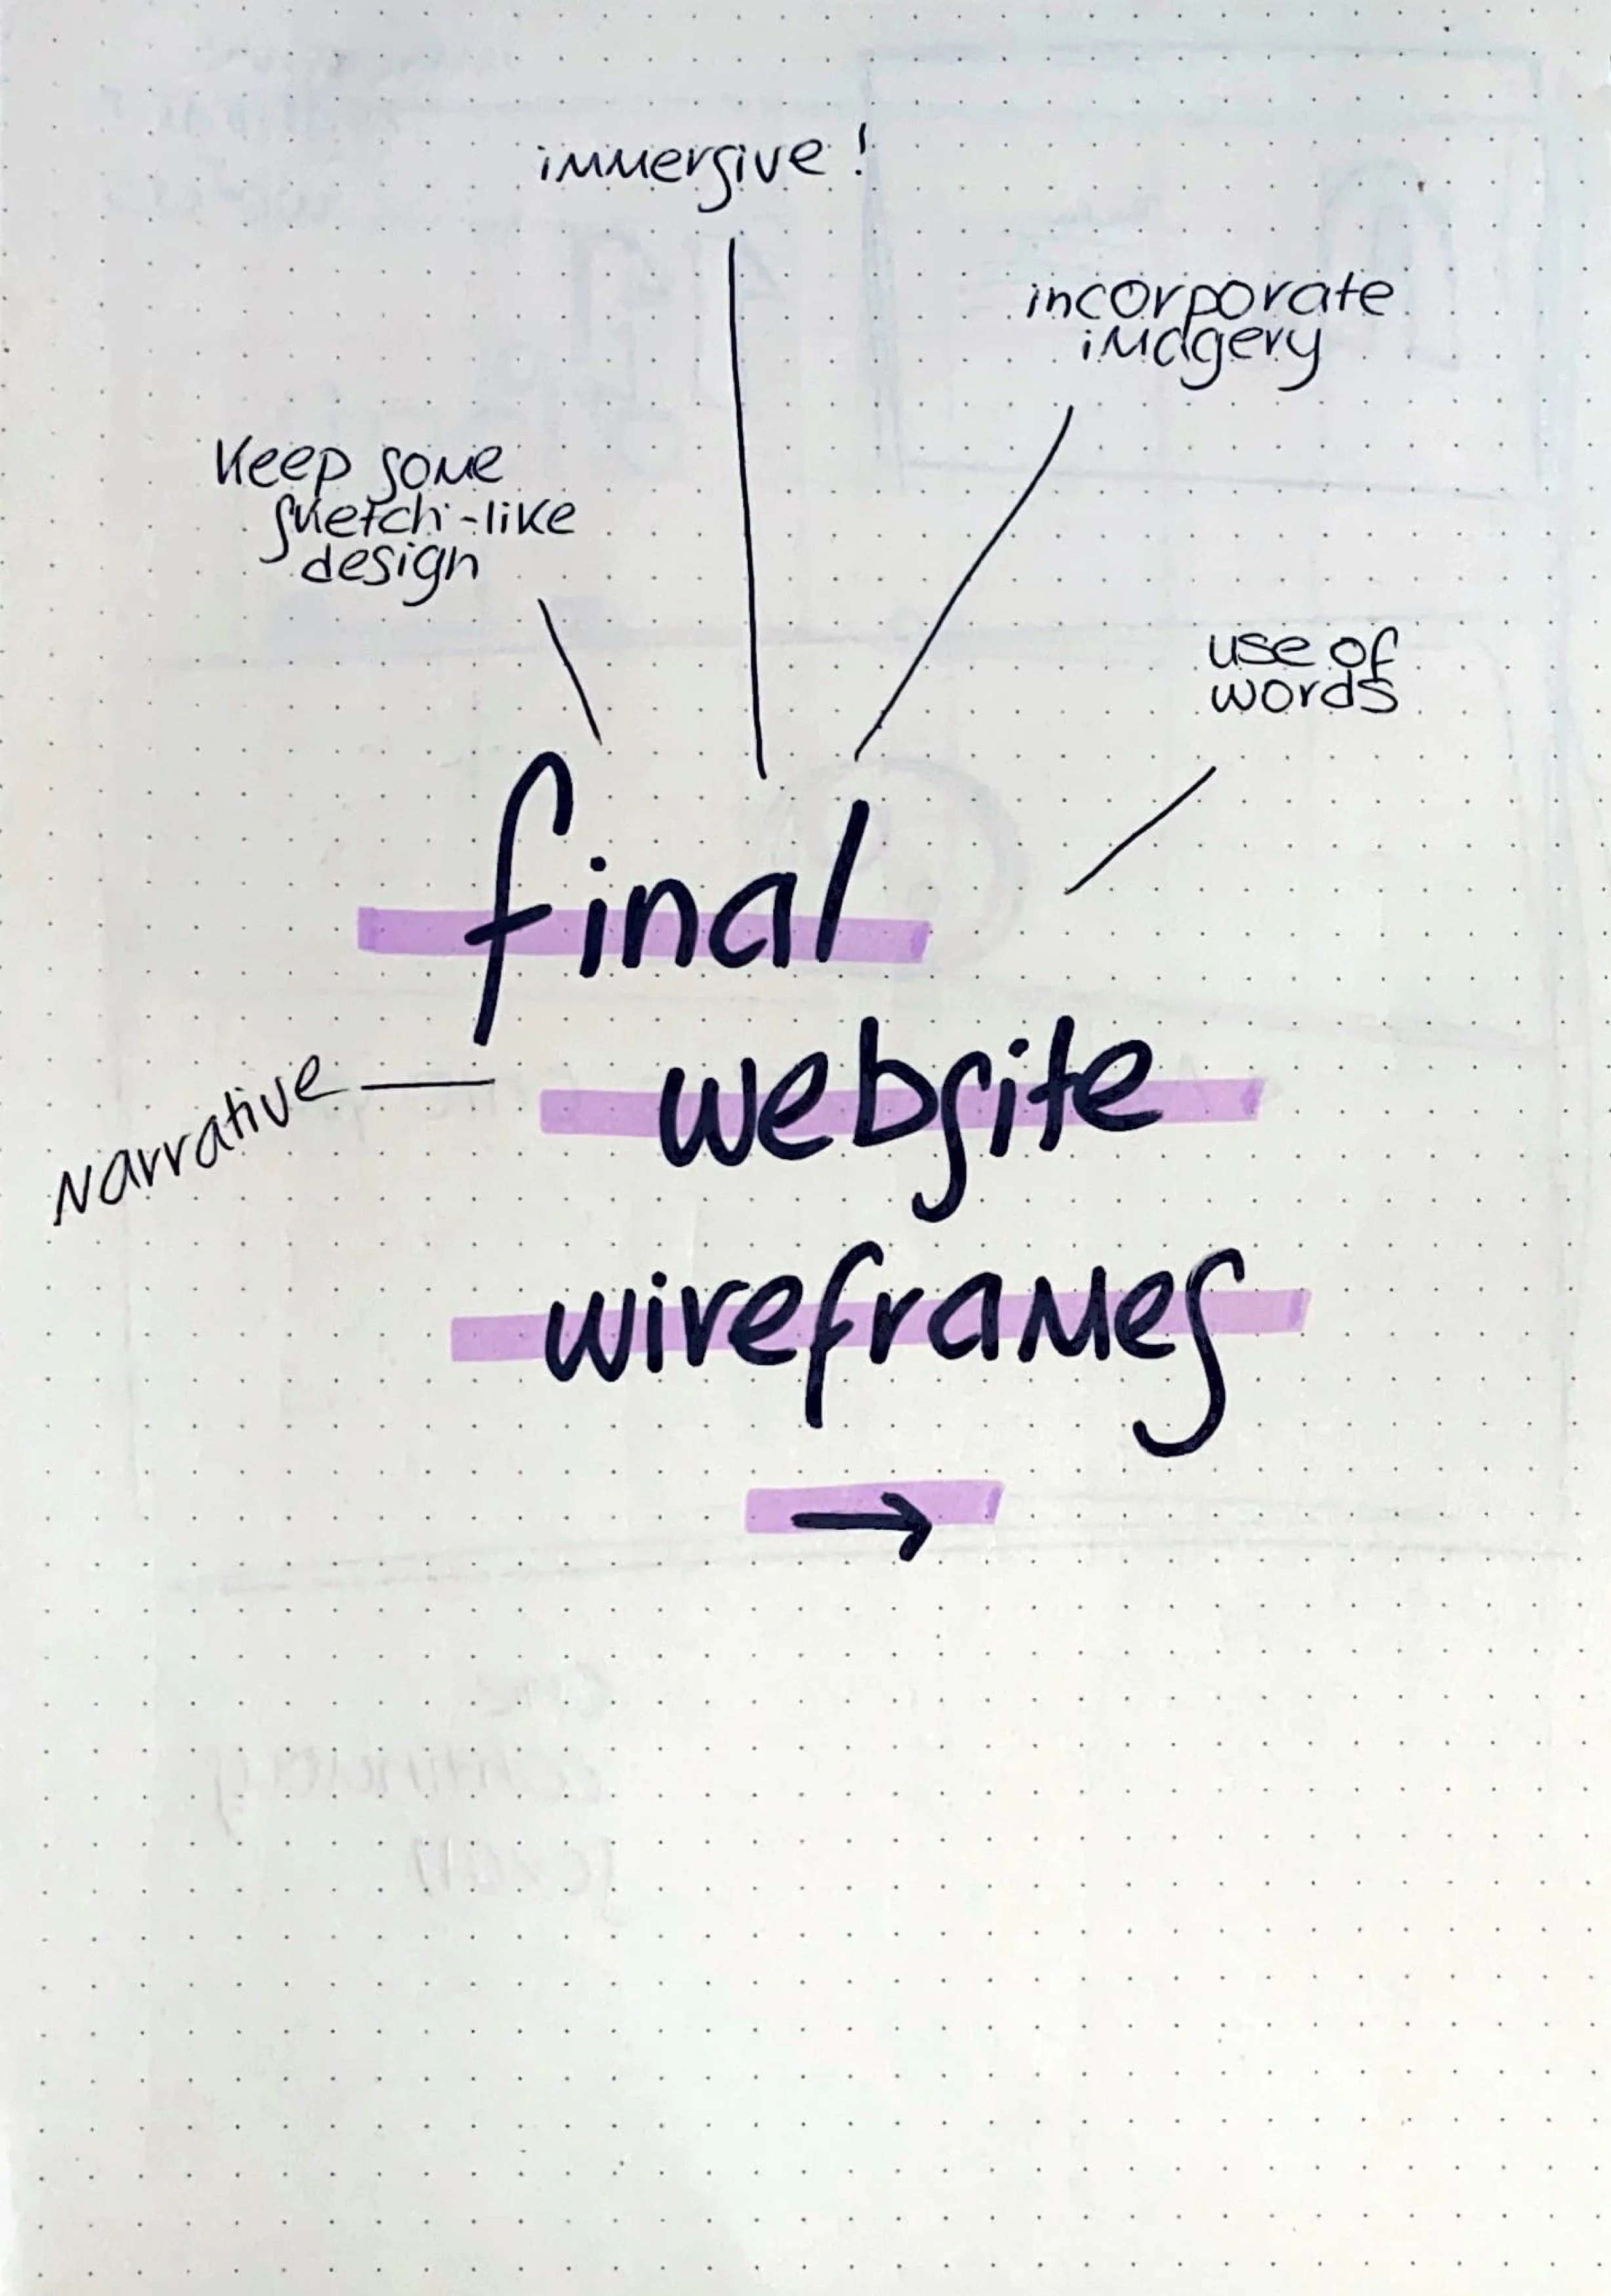 immersive!
incorporate
imagery
Keep some
sketch-like
design
use of
words
final
website
wireframes
narrative
→